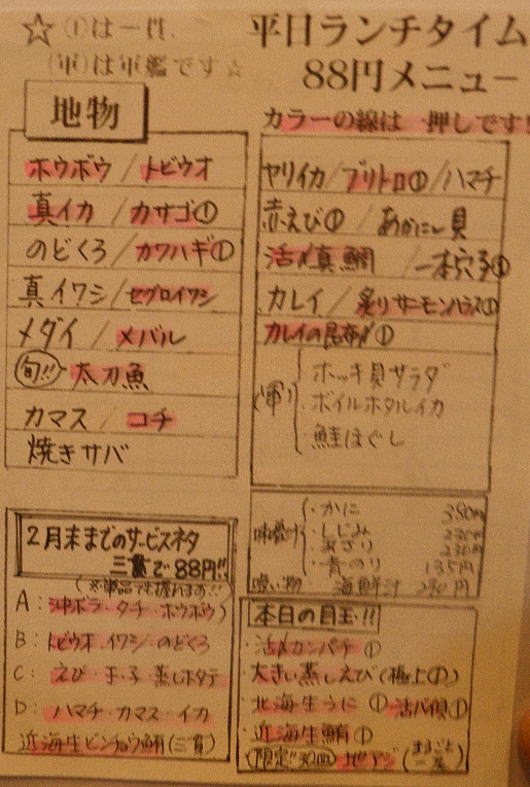 ☆①は一貫、
(軍)は軍艦です☆
平日ランチタイム
88円メニュー
カラーの線は一押しです!
地物
ホウボウ/トビウオ
真イカ/カサゴ①
のどくろ/カワハギ①
真イワシ/セグロイワシ
メダイ/メバル
旬!!太刀魚
カマス/コチ
焼きサバ
ヤリイカ/ブリトロ①/ハマチ
赤えび①/あかにし貝
活〆真鯛/一本穴子①
カレイ/炙りサーモンハラス①
カレイの昆布〆①
(軍)
・ホッキ貝サラダ
・ボイルホタルイカ
・鮭ほぐし
味噌汁
・かに 380円
・しじみ 230円
・あさり 230円
・青のり 135円
吸い物 海鮮汁 290円
2月末までのサービスネタ
三貫で88円!!
(※単品でも握れます!!)
A:沖ボラ・タチ・ホウボウ
B:トビウオ・イワシ・のどくろ
C:えび・玉子・蒸しホタテ
D:ハマチ・カマス・イカ
近海生ビンチョウ鮪(三貫)
本日の目玉!!
・活〆カンパチ①
・大きい蒸しえび(極上①)
・北海生うに①・活バイ貝①
・近海生鮪①
(限定!!30皿)地アジ(まるごと一尾)